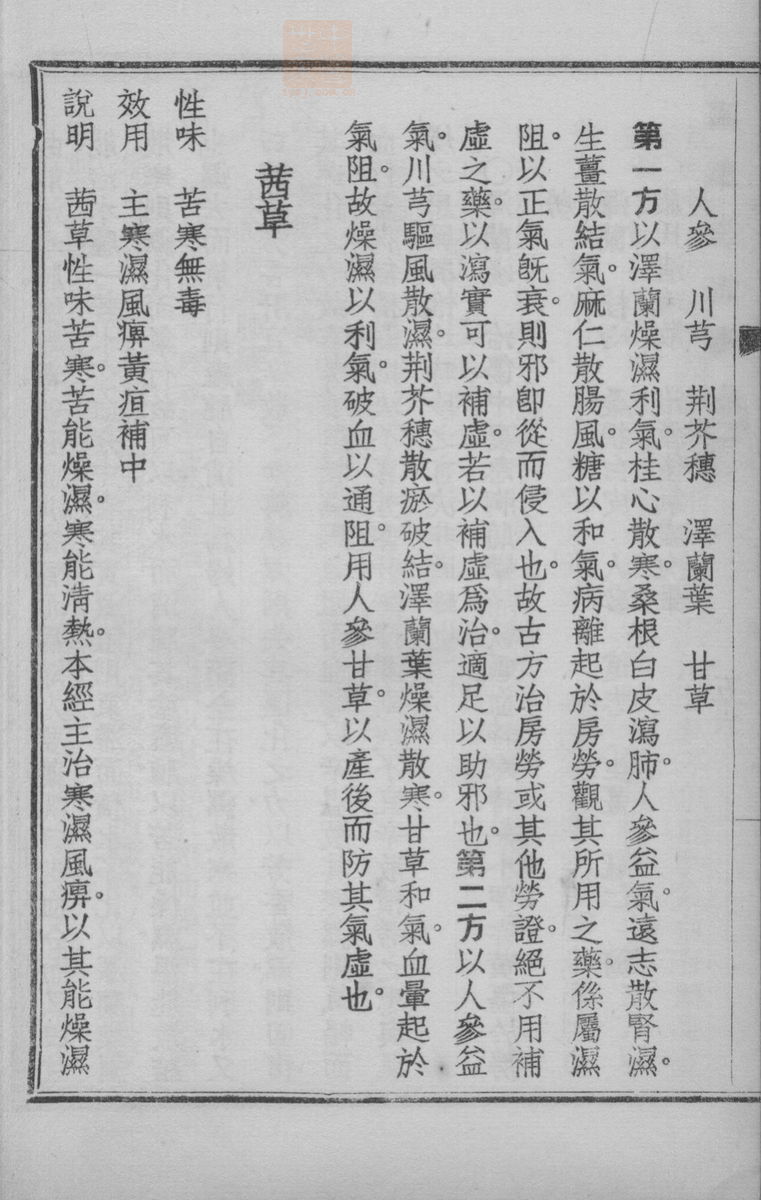 人參　川芎　荆芥穗　澤蘭葉　甘草
第一方以澤蘭燥濕利氣。桂心散寒。桑根白皮瀉肺。人參益氣。遠志散腎濕。
生薑散結氣。麻仁散腸風。糖以和氣。病離起於房勞。觀其所用之藥。係屬濕
阻。以正氣旣衰。則邪卽從而侵入也。故古方治房勞或其他勞證。絕不用補
虛之藥。以瀉實可以補虛。若以補虛爲治。適足以助邪也。第二方以人參益
氣。川芎驅風散濕。荆芥穗散瘀破結。澤蘭葉燥濕散寒。甘草和氣。血暈起於
氣阻。故燥濕以利氣。破血以通阻。用人參甘草。以產後而防其氣虛也。
茜草
性味　苦寒無毒
效用　主寒濕風痹黃疸補中
說明　茜草性味苦寒。苦能燥濕。寒能淸熱。本經主治寒濕風痹。以其能燥濕